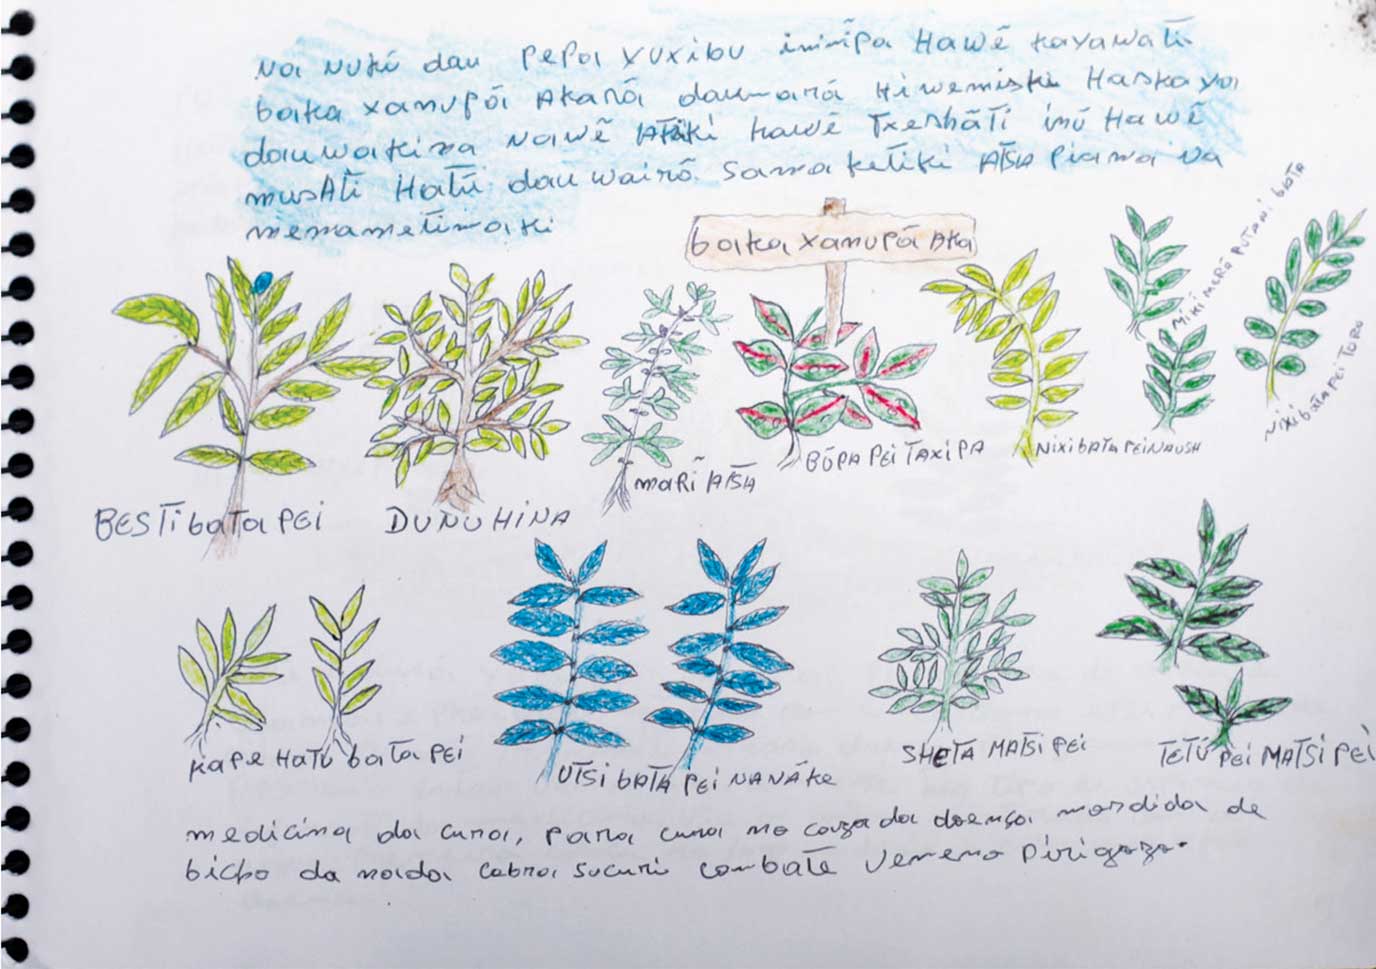 na nukũ dau pepa yuxibu inimĩpa Hawẽ kayawatĩ
baka xanupã Akanã daumarã Hiwemiski Haskaya
dauwakina nawẽ Atiki hawẽ Txeshãtĩ inũ Hawẽ
musAti Hatũ dau wairõ. Sama ketiki Atsa piama na
memametimaki
baka xanupã Aka
mikĩ merã putani bata
BESTi bata pei
DUNU HINA
marĩ Atsa
BŨPA PEi TAXiPA
Nixi bATA PEi NAUSH
Nixi bata pei TORU
Kape Hatũ bata pei
UTSi bATA pei NANÃKE
SHETA MATSi pei
TETŨ pei MATSi pEi
medicina da cura, para cura no caza da doença mordida de
bicho da nada cobra sucuri combate veneno pirigozo.